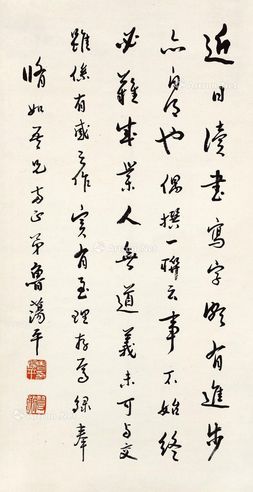 近日读书写字颇有進步
亦自得也偶撰一联云事不始终
必难成業人无道義未可与交
虽系有感之作实有至理存焉録奉
脩如吾兄方正 弟魯蕩平